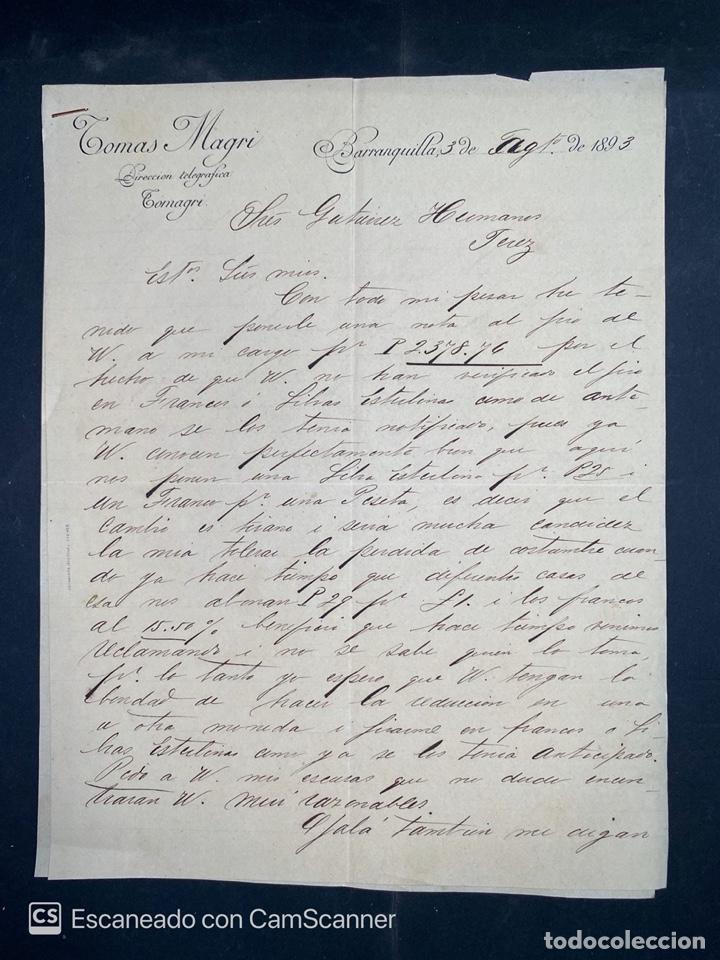 Tomas Magri
Direccion telegrafica
Tomagri.
Barranquilla, 3 de Agto. de 1893
Sres Gutierrez Hermanos
Jerez
Estos. Sres mios.
Con todo mi pesar he te-
nido que ponerle una nota al giro de
W. a mi cargo pr. P 2.378.76 por el
hecho de que W. no han verificado el giro
en Francos i Libras Esterlinas como de ante-
mano se los tenia notificado, pues ya
W. conocen perfectamente bien que aqui
nos ponen una Libra Esterlina pr. P25 i
un Franco pr. una Peseta, es decir que el
Cambio es tirano i seria mucha candidez
la mia tolerar la perdida de costumbre cuan-
do ya hace tiempo que diferentes casas de
esa nos abonan P 29 pr. £1. i los francos
al 15.50% beneficio que hace tiempo venimos
reclamando i no se sabe quien lo toma,
pr. lo tanto yo espero que W. tengan la
bondad de hacer la reduccion en una
u otra moneda i girarme en francos o Li-
bras Esterlinas como ya se los tenia anticipado.
Pido a W. mis escusas que no dudo encon-
traran W. mui razonables
Ojalá tambien me digan
CS Escaneado con CamScanner
todocoleccion